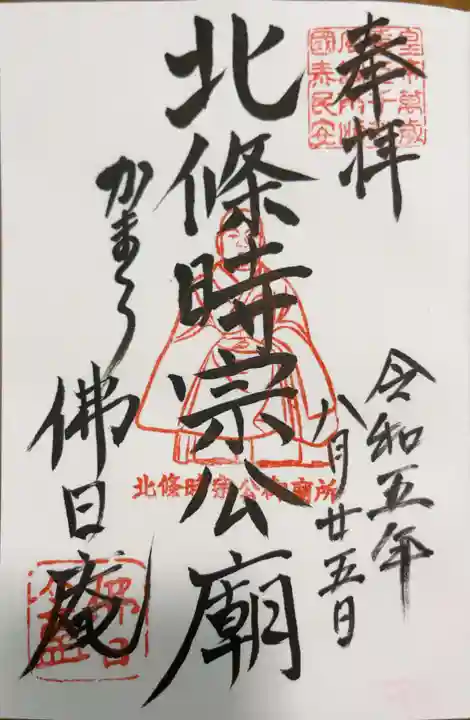 奉拝
皇帝萬歳
國泰民安
令和五年
八月廿五日
北條時宗公廟
北條時宗公御廟所
かまくら
佛日庵